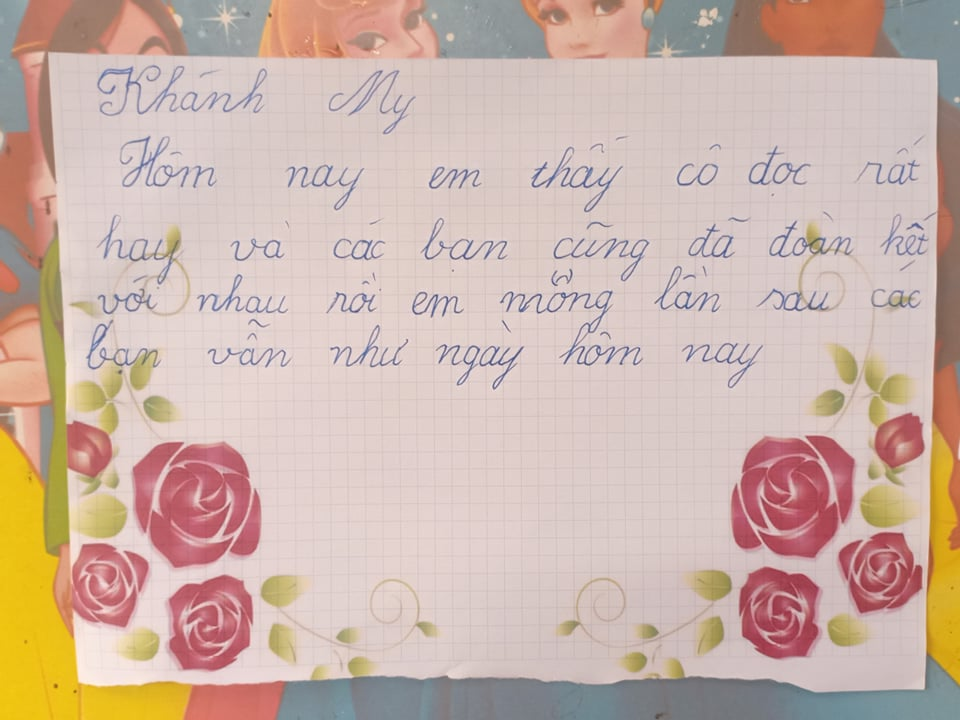 Khánh My
Hôm nay em thấy cô đọc rất
hay và các bạn cũng đã đoàn kết
với nhau rồi em mổng lần sau các
bạn vẫn như ngày hôm nay